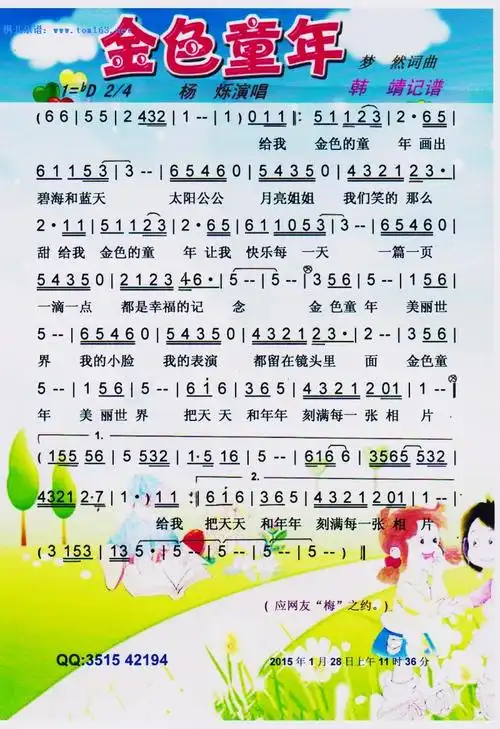 枫叶乐谱: www.tom163.net
金色童年
1=♭D 2/4 杨 烁演唱 梦 然词曲
韩 靖记谱
(66|55|2432|1--|1)011|:51123|2·65|
给我 金色的童 年画出
61153|3--|65460|54350|43212|23·|
碧海和蓝天 太阳公公 月亮姐姐 我们笑的 那么
2·11|51123|2·65|611053|3--|65460|
甜 给我 金色的童 年 让我 快乐每 一天 一篇一页
54350|2123|46·|5--|5--|356|5--|156|
一滴一点 都是幸福的记 念 金色童 年 美丽世
5--|65460|54350|3432123·|2--|356|
界 我的小脸 我的表演 都留在镜头里 面 金色童
5--|156|5--|616|365|4321201|1--|
年 美丽世 界 把天天 和年年 刻满每一张相 片
1.
(15556|5532|1·516|5--|6166|3565532|
2.
43212·7|1--)|11:|616|365|4321201|
给我 把天天 和年年 刻满每一张 相 片
(3153|135·|5--|5--|5--|5--)||
(应网友“梅”之约。)
QQ:3515 42194 2015年1月28日上午11时36分